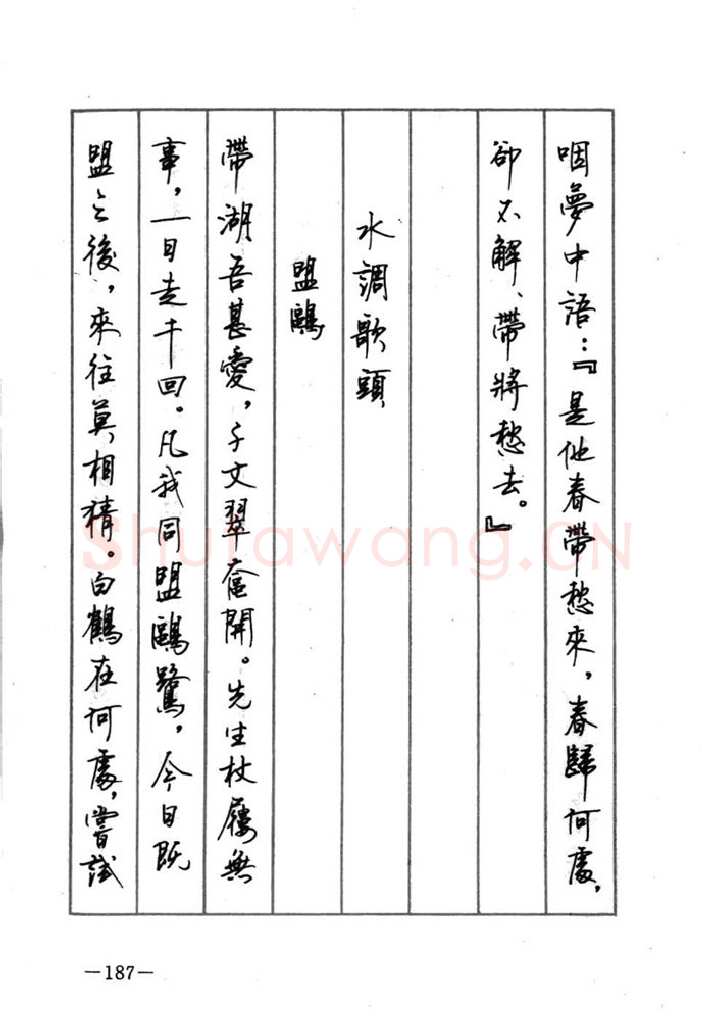 咽夢中語：『是他春帶愁來，春歸何處，
卻不解、帶將愁去。』
水調歌頭
盟鷗
帶湖吾甚愛，千丈翠奩開。先生杖屨無
事，一日走千回。凡我同盟鷗鷺，今日既
盟之後，來往莫相猜。白鶴在何處，嘗試
Shufawang.CN
—187—